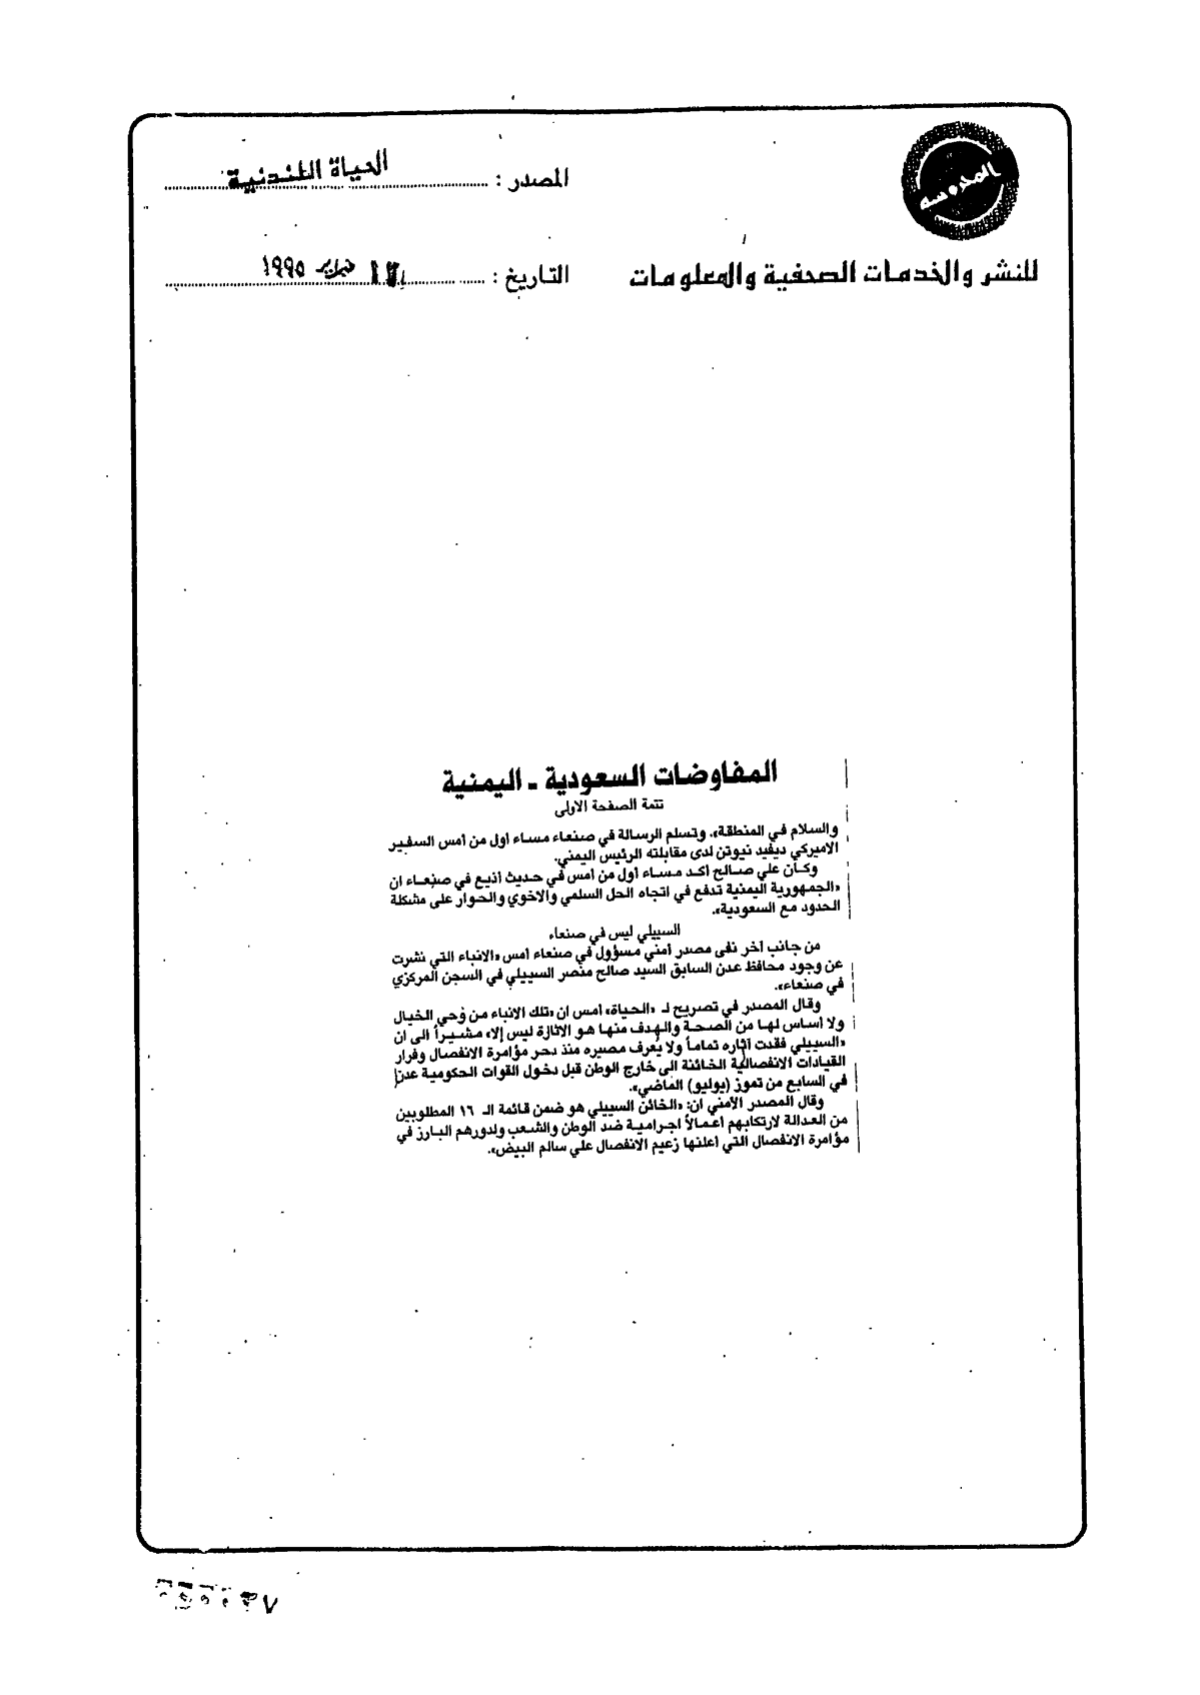 المدروسه
للنشر والخدمات الصحفية والمعلومات
المصدر : الحياة اللندنية
التاريخ : فبراير ١٩٩٥
المفاوضات السعودية ـ اليمنية
تتمة الصفحة الاولى
والسلام في المنطقة». وتسلم الرسالة في صنعاء مساء أول من أمس السفير
الاميركي ديفيد نيوتن لدى مقابلته الرئيس اليمني.
وكان علي صالح أكد مساء أول من أمس في حديث أذيع في صنعاء ان
«الجمهورية اليمنية تدفع في اتجاه الحل السلمي والاخوي والحوار على مشكلة
الحدود مع السعودية».
السييلي ليس في صنعاء
من جانب آخر نفى مصدر أمني مسؤول في صنعاء أمس «الانباء التي نشرت
عن وجود محافظ عدن السابق السيد صالح منصر السييلي في السجن المركزي
في صنعاء».
وقال المصدر في تصريح لـ «الحياة» أمس ان «تلك الانباء من وحي الخيال
ولا أساس لها من الصحة والهدف منها هو الاثارة ليس إلا» مشيراً الى ان
«السييلي فقدت آثاره تماماً ولا يُعرف مصيره منذ دحر مؤامرة الانفصال وفرار
القيادات الانفصالية الخائنة الى خارج الوطن قبل دخول القوات الحكومية عدن
في السابع من تموز (يوليو) الماضي».
وقال المصدر الأمني ان: «الخائن السييلي هو ضمن قائمة الـ ١٦ المطلوبين
من العدالة لارتكابهم اعمالاً اجرامية ضد الوطن والشعب ولدورهم البارز في
مؤامرة الانفصال التي أعلنها زعيم الانفصال علي سالم البيض».